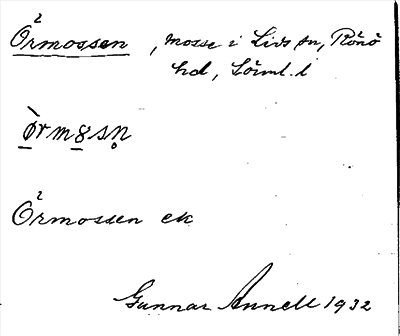 Örmossen, mosse i Lids sn, Rönö
hd, Sörml. l
ø̀rm8sn̥
Örmossen ek
Gunnar Annell 1932